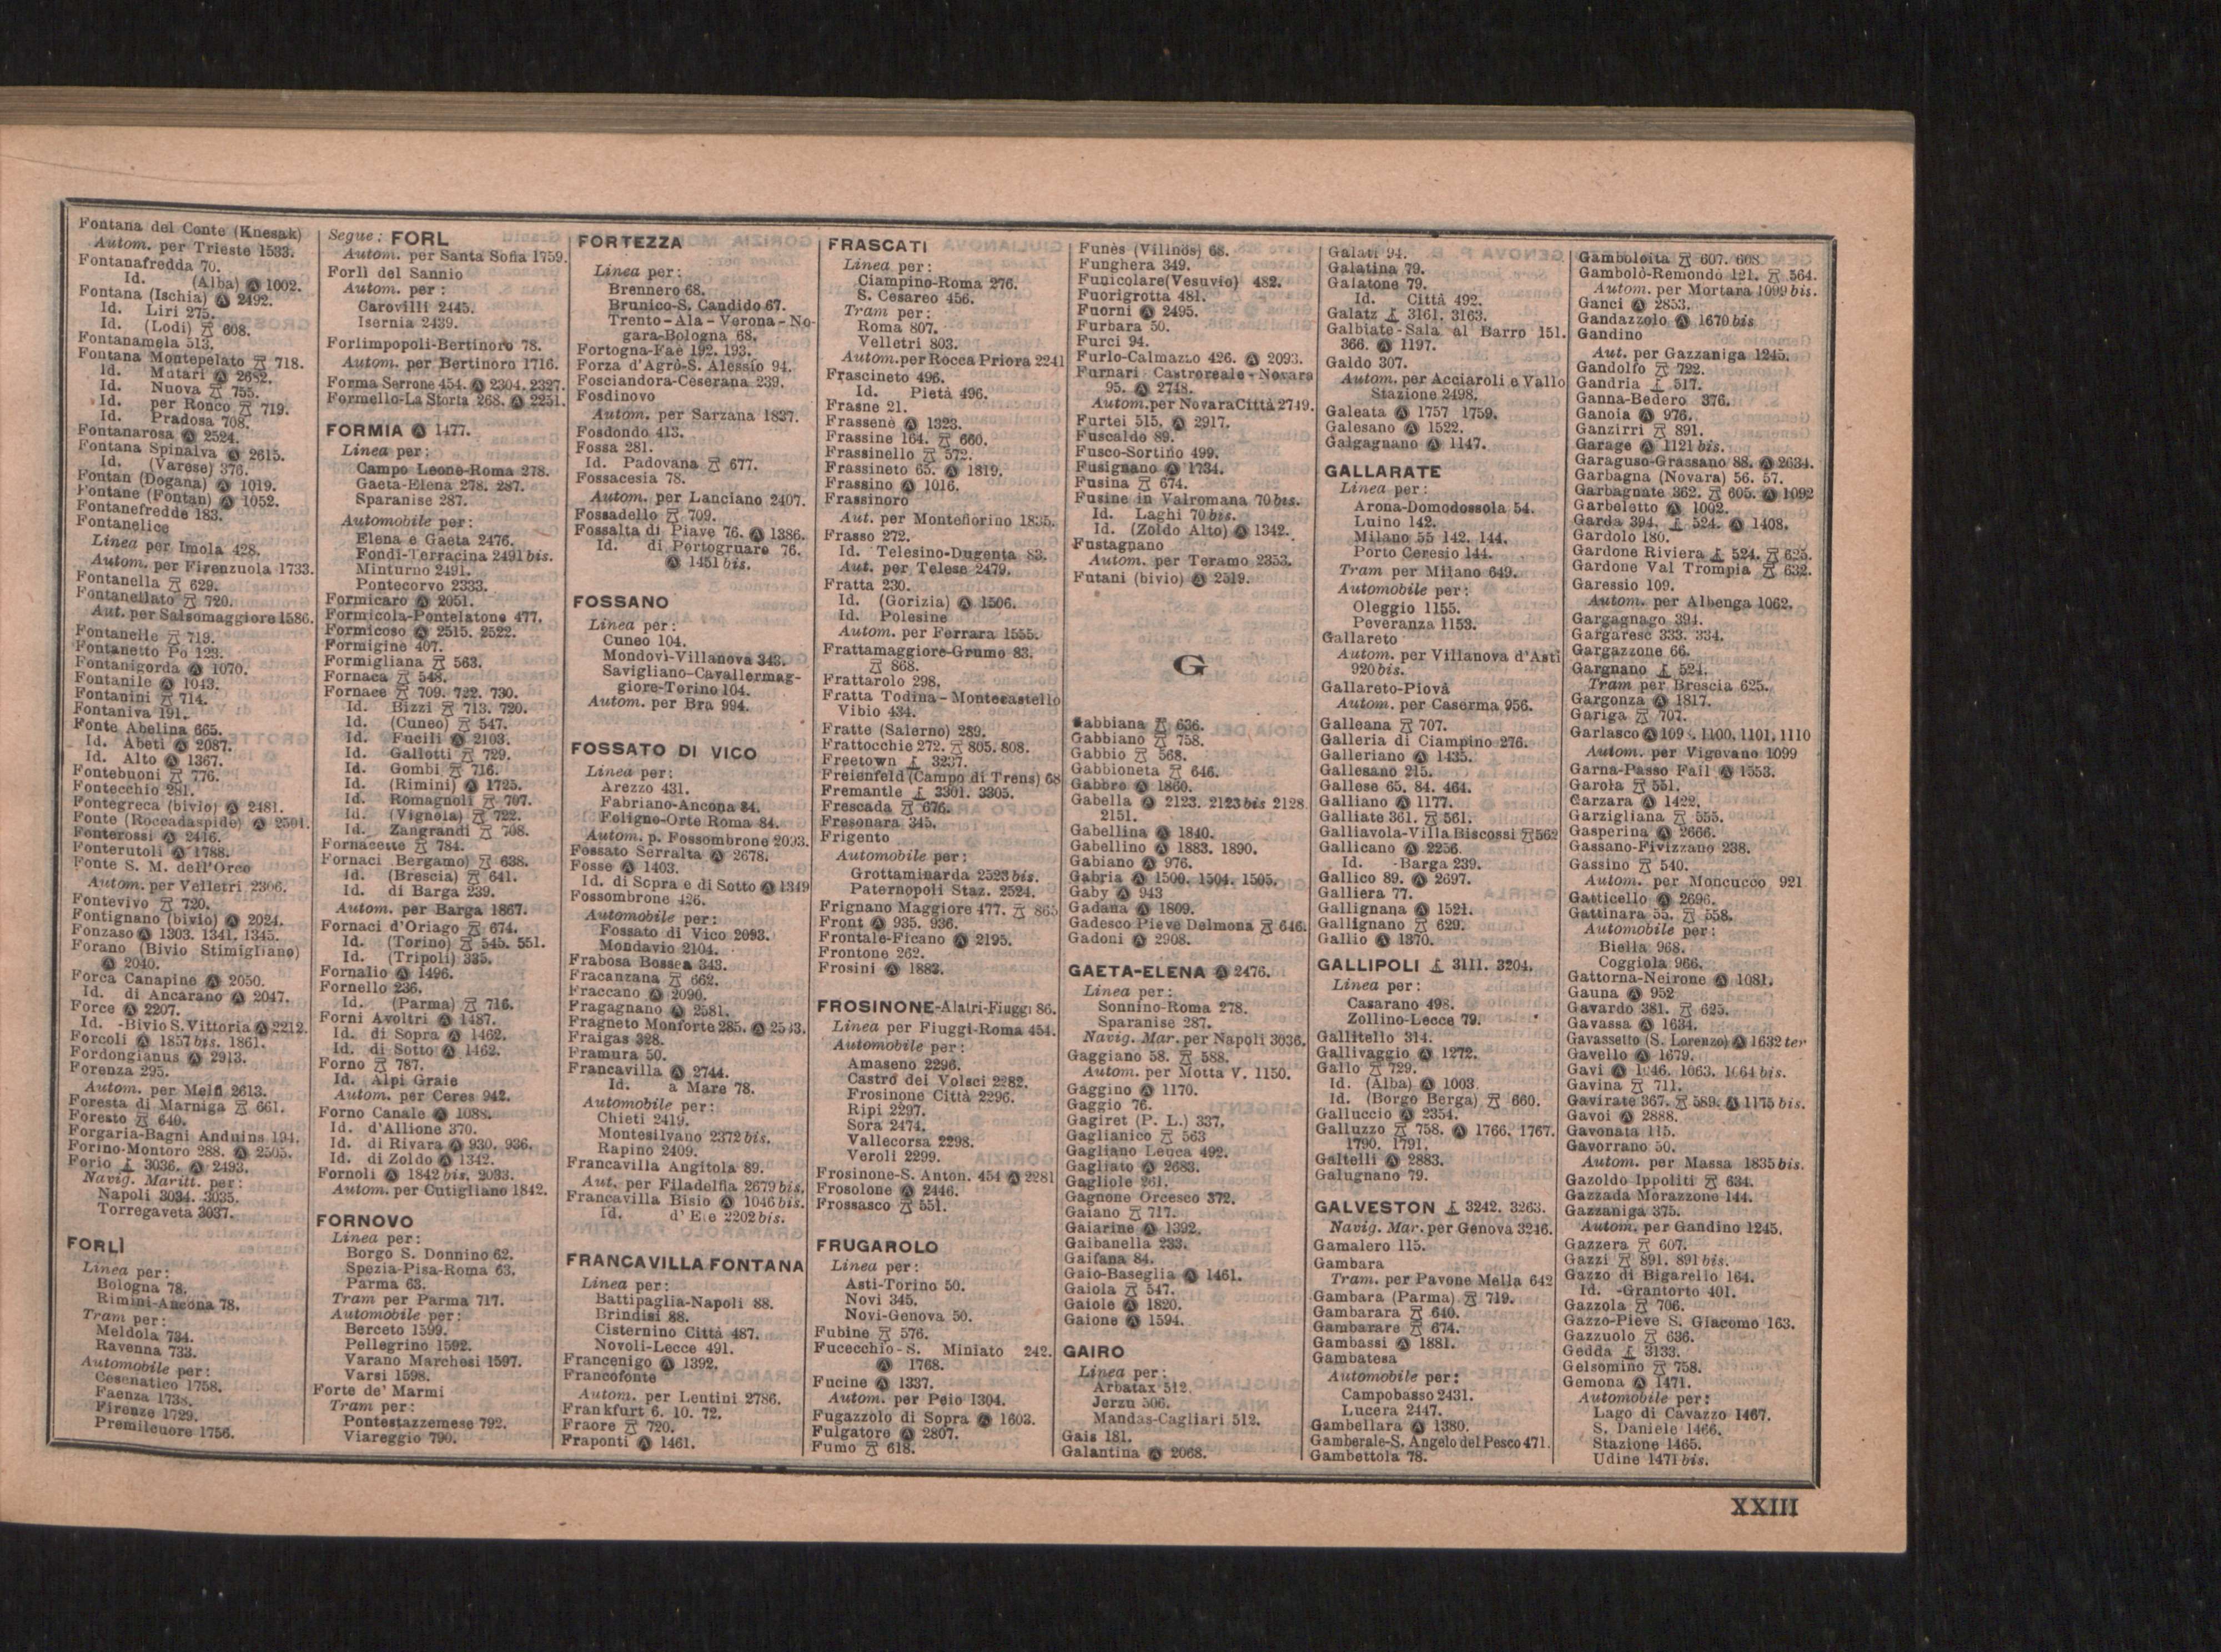 Fontana del Conte (Knesak)
Autom. per Trieste 1533.
Fontanafredda 70.
Id. (Alba) Ⓐ 1002.
Fontana (Ischia) Ⓐ 2492.
Id. Liri 275.
Id. (Lodi) 608.
Fontanamela 513.
Fontana Montepelato 718.
Id. Matari Ⓐ 2682.
Id. Nuova 755.
Id. per Ronco 719.
Id. Pradosa 708.
Fontanarosa Ⓐ 2524.
Fontana Spinalva Ⓐ 2615.
Id. (Varese) 376.
Fontan (Dogana) Ⓐ 1019.
Fontane (Fontan) Ⓐ 1052.
Fontanefredde 183.
Fontanelice
Linea per Imola 428.
Autom. per Firenzuola 1733.
Fontanella 629.
Fontanellato 720.
Aut. per Salsomaggiore 1586.
Fontanelle 719.
Fontanetto Po 123.
Fontanigorda Ⓐ 1070.
Fontanile Ⓐ 1043.
Fontanini 714.
Fontaniva 191.
Fonte Abelina 665.
Id. Abeti Ⓐ 2087.
Id. Alto Ⓐ 1367.
Fontebuoni 776.
Fontecchio 281.
Fontegreca (bivio) Ⓐ 2481.
Fonte (Roccadaspide) Ⓐ 2501.
Fonterossi Ⓐ 2416.
Fonterutoli Ⓐ 1788.
Fonte S. M. dell'Orco
Autom. per Velletri 2306.
Fontevivo 720.
Fontignano (bivio) Ⓐ 2024.
Fonzaso Ⓐ 1303. 1341. 1345.
Forano (Bivio Stimigliano)
Ⓐ 2040.
Forca Canapine Ⓐ 2050.
Id. di Ancarano Ⓐ 2047.
Force Ⓐ 2207.
Id. -Bivio S. Vittoria Ⓐ 2212.
Forcoli Ⓐ 1857 bis. 1861.
Fordongianus Ⓐ 2913.
Forenza 295.
Autom. per Melfi 2613.
Foresta di Marniga 661.
Foresto 640.
Forgaria-Bagni Anduins 194.
Forino-Montoro 288. Ⓐ 2505.
Forio 3036. Ⓐ 2493.
Navig. Maritt. per:
Napoli 3034. 3035.
Torregaveta 3037.
FORLÌ
Linea per:
Bologna 78.
Rimini-Ancona 78.
Tram per:
Meldola 734.
Ravenna 733.
Automobile per:
Cesenatico 1758.
Faenza 1738.
Firenze 1729.
Premilcuore 1756.
Segue: FORL
Autom. per Santa Sofia 1759.
Forlì del Sannio
Autom. per:
Carovilli 2445.
Isernia 2439.
Forlimpopoli-Bertinoro 78.
Autom. per Bertinoro 1716.
Forma Serrone 454. Ⓐ 2304. 2327.
Formello-La Storta 268. Ⓐ 2251.
FORMIA Ⓐ 1477.
Linea per:
Campo Leone-Roma 278.
Gaeta-Elena 278. 287.
Sparanise 287.
Automobile per:
Elena e Gaeta 2476.
Fondi-Terracina 2491 bis.
Minturno 2491.
Pontecorvo 2333.
Formicaro Ⓐ 2051.
Formicola-Pontelatone 477.
Formicoso Ⓐ 2515. 2522.
Formigine 407.
Formigliana 563.
Fornaca 548.
Fornace 709. 722. 730.
Id. Bizzi 713. 720.
Id. (Cuneo) 547.
Id. Fucili Ⓐ 2103.
Id. Gallotti 729.
Id. Gombi 716.
Id. (Rimini) Ⓐ 1725.
Id. Romagnoli 707.
Id. (Vignola) 722.
Id. Zangrandi 708.
Fornacette 784.
Fornaci Bergamo) 638.
Id. (Brescia) 641.
Id. di Barga 239.
Autom. per Barga 1867.
Fornaci d'Oriago 674.
Id. (Torino) 545. 551.
Id. (Tripoli) 335.
Fornalio Ⓐ 1496.
Fornello 236.
Id. (Parma) 716.
Forni Avoltri Ⓐ 1487.
Id. di Sopra Ⓐ 1462.
Id. di Sotto Ⓐ 1462.
Forno 787.
Id. Alpi Graie
Autom. per Ceres 942.
Forno Canale Ⓐ 1088.
Id. d'Allione 370.
Id. di Rivara Ⓐ 930. 936.
Id. di Zoldo Ⓐ 1342.
Fornoli Ⓐ 1842 bis. 2033.
Autom. per Cutigliano 1842.
FORNOVO
Linea per:
Borgo S. Donnino 62.
Spezia-Pisa-Roma 63.
Parma 63.
Tram per Parma 717.
Automobile per:
Berceto 1599.
Pellegrino 1592.
Varano Marchesi 1597.
Varsi 1598.
Forte de' Marmi
Tram per:
Pontestazzemese 792.
Viareggio 790.
FORTEZZA
Linea per:
Brennero 68.
Brunico-S. Candido 67.
Trento-Ala-Verona-No-
gara-Bologna 68.
Fortogna-Faè 192. 193.
Forza d'Agrò-S. Alessio 94.
Fosciandora-Ceserana 239.
Fosdinovo
Autom. per Sarzana 1837.
Fosdondo 413.
Fossa 281.
Id. Padovana 677.
Fossacesia 78.
Autom. per Lanciano 2407.
Fossadello 709.
Fossalta di Piave 76. Ⓐ 1386.
Id. di Portogruaro 76.
Ⓐ 1451 bis.
FOSSANO
Linea per:
Cuneo 104.
Mondovì-Villanova 343.
Savigliano-Cavallermag-
giore-Torino 104.
Autom. per Bra 994.
FOSSATO DI VICO
Linea per:
Arezzo 431.
Fabriano-Ancona 84.
Foligno-Orte Roma 84.
Autom. p. Fossombrone 2093.
Fossato Serralta Ⓐ 2678.
Fosse Ⓐ 1403.
Id. di Sopra e di Sotto Ⓐ 1349
Fossombrone 426.
Automobile per:
Fossato di Vico 2093.
Mondavio 2104.
Frabosa Bossea 343.
Fracanzana 662.
Fraccano Ⓐ 2090.
Fragagnano Ⓐ 2581.
Fragneto Monforte 285. Ⓐ 2543.
Fraigas 328.
Framura 50.
Francavilla Ⓐ 2744.
Id. a Mare 78.
Automobile per:
Chieti 2419.
Montesilvano 2372 bis.
Rapino 2409.
Francavilla Angitola 89.
Aut. per Filadelfia 2679 bis.
Francavilla Bisio Ⓐ 1046 bis.
Id. d' Ete 2202 bis.
FRANCAVILLA FONTANA
Linea per:
Battipaglia-Napoli 88.
Brindisi 88.
Cisternino Città 487.
Novoli-Lecce 491.
Francenigo Ⓐ 1392.
Francofonte
Autom. per Lentini 2786.
Frankfurt 6. 10. 72.
Fraore 720.
Fraponti Ⓐ 1461.
FRASCATI
Linea per:
Ciampino-Roma 276.
S. Cesareo 456.
Tram per:
Roma 807.
Velletri 803.
Autom. per Rocca Priora 2241
Frascineto 496.
Id. Pietà 496.
Frasne 21.
Frassenè Ⓐ 1323.
Frassine 164. 660.
Frassinello 572.
Frassineto 65. Ⓐ 1819.
Frassino Ⓐ 1016.
Frassinoro
Aut. per Montefiorino 1835.
Frasso 272.
Id. Telesino-Dugenta 83.
Aut. per Telese 2479.
Fratta 230.
Id. (Gorizia) Ⓐ 1506.
Id. Polesine
Autom. per Ferrara 1555.
Frattamaggiore-Grumo 83.
868.
Frattarolo 298.
Fratta Todina-Montecastello
Vibio 434.
Fratte (Salerno) 289.
Frattocchie 272. 805. 808.
Freetown 3237.
Freienfeld (Campo di Trens) 68
Fremantle 3301. 3305.
Frescada 676.
Fresonara 345.
Frigento
Automobile per:
Grottaminarda 2523 bis.
Paternopoli Staz. 2524.
Frignano Maggiore 477. 865
Front Ⓐ 935. 936.
Frontale-Ficano Ⓐ 2195.
Frontone 262.
Frosini Ⓐ 1883.
FROSINONE-Alatri-Fiuggi 86.
Linea per Fiuggi-Roma 454.
Automobile per:
Amaseno 2296.
Castro dei Volsci 2282.
Frosinone Città 2296.
Ripi 2297.
Sora 2474.
Vallecorsa 2298.
Veroli 2299.
Frosinone-S. Anton. 454 Ⓐ 2281
Frosolone Ⓐ 2446.
Frossasco 551.
FRUGAROLO
Linea per:
Asti-Torino 50.
Novi 345.
Novi-Genova 50.
Fubine 576.
Fucecchio-S. Miniato 242.
Ⓐ 1768.
Fucine Ⓐ 1337.
Autom. per Peio 1304.
Fugazzolo di Sopra Ⓐ 1603.
Fulgatore Ⓐ 2807.
Fumo 618.
Funès (Villnös) 68.
Funghera 349.
Funicolare (Vesuvio) 482.
Fuorigrotta 481.
Fuorni Ⓐ 2495.
Furbara 50.
Furci 94.
Furlo-Calmazzo 426. Ⓐ 2093.
Furnari Castroreale-Novara
95. Ⓐ 2748.
Autom. per Novara Città 2749.
Furtei 515. Ⓐ 2917.
Fuscaldo 89.
Fusco-Sortino 499.
Fusignano Ⓐ 1734.
Fusina 674.
Fusine in Valromana 70 bis.
Id. Laghi 70 bis.
Id. (Zoldo Alto) Ⓐ 1342.
Fustagnano
Autom. per Teramo 2353.
Futani (bivio) Ⓐ 2519.
G
Gabbiana 636.
Gabbiano 758.
Gabbio 568.
Gabbioneta 646.
Gabbro Ⓐ 1860.
Gabella Ⓐ 2123. 2123 bis 2128
2151.
Gabellina Ⓐ 1840.
Gabellino Ⓐ 1883. 1890.
Gabiano Ⓐ 976.
Gabria Ⓐ 1500. 1504. 1505.
Gaby Ⓐ 943
Gadana Ⓐ 1809.
Gadesco Pieve Delmona 646.
Gadoni Ⓐ 2908.
GAETA-ELENA Ⓐ 2476.
Linea per:
Sonnino-Roma 278.
Sparanise 287.
Navig. Mar. per Napoli 3036.
Gaggiano 58. 588.
Autom. per Motta V. 1150.
Gaggino Ⓐ 1170.
Gaggio 76.
Gagiret (P. L.) 337.
Gaglianico 563
Gagliano Leuca 492.
Gagliato Ⓐ 2683.
Gagliole 261.
Gagnone Orcesco 372.
Gaiano 717.
Gaiarine Ⓐ 1392.
Gaibanella 233.
Gaifana 84.
Gaio-Baseglia Ⓐ 1461.
Gaiola 547.
Gaiole Ⓐ 1820.
Gaione Ⓐ 1594.
GAIRO
Linea per:
Arbatax 512.
Jerzu 506.
Mandas-Cagliari 512.
Gais 181.
Galantina Ⓐ 2068.
Galati 94.
Galatina 79.
Galatone 79.
Id. Città 492.
Galatz 3161. 3163.
Galbiate-Sala al Barro 151.
366. Ⓐ 1197.
Galdo 307.
Autom. per Acciaroli e Vallo
Stazione 2498.
Galeata Ⓐ 1757 1759.
Galesano Ⓐ 1522.
Galgagnano Ⓐ 1147.
GALLARATE
Linea per:
Arona-Domodossola 54.
Luino 142.
Milano 55 142. 144.
Porto Ceresio 144.
Tram per Milano 649.
Automobile per:
Oleggio 1155.
Peveranza 1153.
Gallareto
Autom. per Villanova d'Asti
920 bis.
Gallareto-Piovà
Autom. per Caserma 956.
Galleana 707.
Galleria di Ciampino 276.
Galleriano Ⓐ 1435.
Gallesano 215.
Gallese 65. 84. 464.
Galliano Ⓐ 1177.
Galliate 361. 561.
Galliavola-Villa Biscossi 562
Gallicano Ⓐ 2256.
Id. -Barga 239.
Gallico 89. Ⓐ 2697.
Galliera 77.
Gallignana Ⓐ 1521.
Gallignano 629.
Gallio Ⓐ 1370.
GALLIPOLI 3111. 3204.
Linea per:
Casarano 498.
Zollino-Lecce 79.
Gallitello 314.
Gallivaggio Ⓐ 1272.
Gallo 729.
Id. (Alba) Ⓐ 1003.
Id. (Borgo Berga) 660.
Galluccio Ⓐ 2354.
Galluzzo 758. Ⓐ 1766. 1767.
1790. 1791.
Galtelli Ⓐ 2883.
Galugnano 79.
GALVESTON 3242. 3263.
Navig. Mar. per Genova 3246.
Gamalero 115.
Gambara
Tram. per Pavone Mella 642
Gambara (Parma) 719.
Gambarara 640.
Gambarare 674.
Gambassi Ⓐ 1881.
Gambatesa
Automobile per:
Campobasso 2431.
Lucera 2447.
Gambellara Ⓐ 1380.
Gamberale-S. Angelo del Pesco 471.
Gambettola 78.
Gamboloita 607. 608
Gambolò-Remondò 121. 564.
Autom. per Mortara 1099 bis.
Ganci Ⓐ 2853.
Gandazzolo Ⓐ 1670 bis
Gandino
Aut. per Gazzaniga 1245.
Gandolfo 722.
Gandria 517.
Ganna-Bedero 376.
Ganoia Ⓐ 976.
Ganzirri 891.
Garage Ⓐ 1121 bis.
Garaguso-Grassano 88. Ⓐ 2634.
Garbagna (Novara) 56. 57.
Garbagnate 362. 605. Ⓐ 1092
Garbeletto Ⓐ 1002.
Garda 394. 524. Ⓐ 1408.
Gardolo 180.
Gardone Riviera 524. 625.
Gardone Val Trompia 632.
Garessio 109.
Autom. per Albenga 1062.
Gargagnago 391.
Gargaresc 333. 334.
Gargazzone 66.
Gargnano 524.
Tram per Brescia 625.
Gargonza Ⓐ 1817.
Gariga 707.
Garlasco Ⓐ 1100. 1101. 1110
Autom. per Vigevano 1099
Garna-Passo Fail Ⓐ 1553.
Garola 551.
Garzara Ⓐ 1422.
Garzigliana 555.
Gasperina Ⓐ 2666.
Gassano-Fivizzano 238.
Gassino 540.
Autom. per Moncucco 921
Gatticello Ⓐ 2696.
Gattinara 55. 558.
Automobile per:
Biella 968.
Coggiola 966.
Gattorna-Neirone Ⓐ 1081.
Gauna Ⓐ 952
Gavardo 381. 625.
Gavassa Ⓐ 1634.
Gavassetto (S. Lorenzo) Ⓐ 1632 ter
Gavello Ⓐ 1679.
Gavi Ⓐ 1046. 1063. 1064 bis.
Gavina 711.
Gavirate 367. 589. Ⓐ 1175 bis.
Gavoi Ⓐ 2888.
Gavonata 115.
Gavorrano 50.
Autom. per Massa 1835 bis.
Gazoldo Ippoliti 634.
Gazzada Morazzone 144.
Gazzaniga 375.
Autom. per Gandino 1245.
Gazzera 607.
Gazzi 891. 891 bis.
Gazzo di Bigarello 164.
Id. -Grantorto 401.
Gazzola 706.
Gazzo-Pieve S. Giacomo 163.
Gazzuolo 636.
Gedda 3133.
Gelsomino 758.
Gemona Ⓐ 1471.
Automobile per:
Lago di Cavazzo 1467.
S. Daniele 1466.
Stazione 1465.
Udine 1471 bis.
XXIII